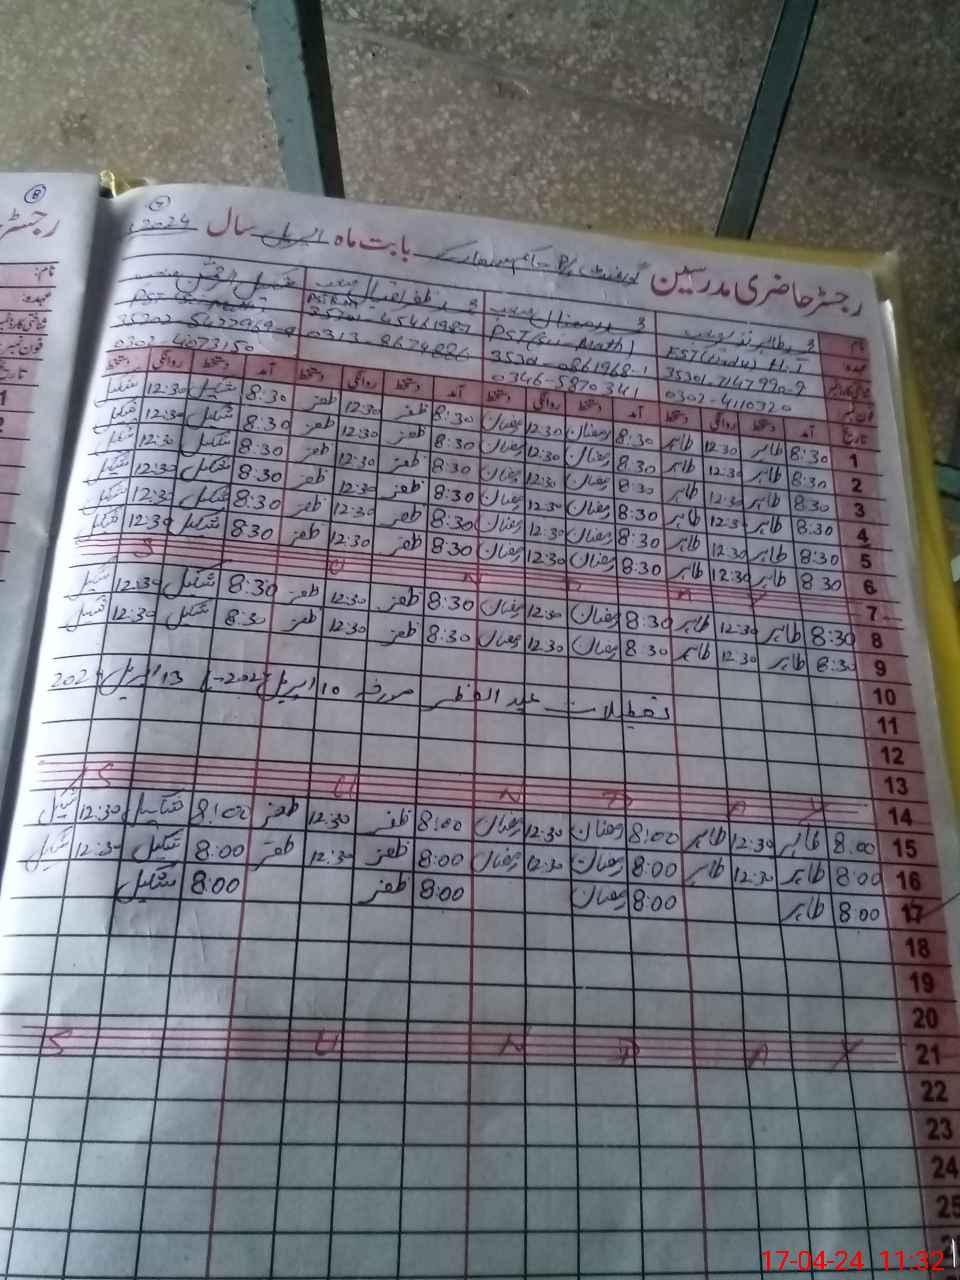 8
رجسٹر
نام:
عہدہ:
1
2
7
رجسٹر حاضری مدرسین گورنمنٹ P/S بابت ماہ اپریل سال 2024
نام
محمد رمضان صاحب
عہدہ EST
PST (Sci Math)
35302-5422969-9
0302-4073150
0313-8674886
0346-5870341
0302-4110320
تاریخ آمد دستخط روانگی دستخط آمد دستخط روانگی دستخط آمد دستخط روانگی دستخط آمد دستخط روانگی دستخط
1 8:30 طاہر 12:30 طاہر 8:30 رمضان 12:30 رمضان 8:30 ظفر 12:30 ظفر 8:30 شکیل 12:30 شکیل
2 8:30 طاہر 12:30 طاہر 8:30 رمضان 12:30 رمضان 8:30 ظفر 12:30 ظفر 8:30 شکیل 12:30 شکیل
3 8:30 طاہر 12:30 طاہر 8:30 رمضان 12:30 رمضان 8:30 ظفر 12:30 ظفر 8:30 شکیل 12:30 شکیل
4 8:30 طاہر 12:30 طاہر 8:30 رمضان 12:30 رمضان 8:30 ظفر 12:30 ظفر 8:30 شکیل 12:30 شکیل
5 8:30 طاہر 12:30 طاہر 8:30 رمضان 12:30 رمضان 8:30 ظفر 12:30 ظفر 8:30 شکیل 12:30 شکیل
6 8:30 طاہر 12:30 طاہر 8:30 رمضان 12:30 رمضان 8:30 ظفر 12:30 ظفر 8:30 شکیل 12:30 شکیل
7 S U N D A Y
8 8:30 طاہر 12:30 طاہر 8:30 رمضان 12:30 رمضان 8:30 ظفر 12:30 ظفر 8:30 شکیل 12:30 شکیل
9 8:30 طاہر 12:30 طاہر 8:30 رمضان 12:30 رمضان 8:30 ظفر 12:30 ظفر 8:30 شکیل 12:30 شکیل
10
11 تعطیلات عید الفطر مورخہ 10 اپریل 2024 تا 13 اپریل 2024
12
13
14 S U N D A Y
15 8:00 طاہر 12:30 طاہر 8:00 رمضان 12:30 رمضان 8:00 ظفر 12:30 ظفر 8:00 شکیل 12:30 شکیل
16 8:00 طاہر 12:30 طاہر 8:00 رمضان 12:30 رمضان 8:00 ظفر 12:30 ظفر 8:00 شکیل 12:30 شکیل
17 8:00 طاہر 8:00 رمضان 8:00 ظفر 8:00 شکیل
18
19
20
21 S U N D A Y
22
23
24
25
17-04-24 11:32